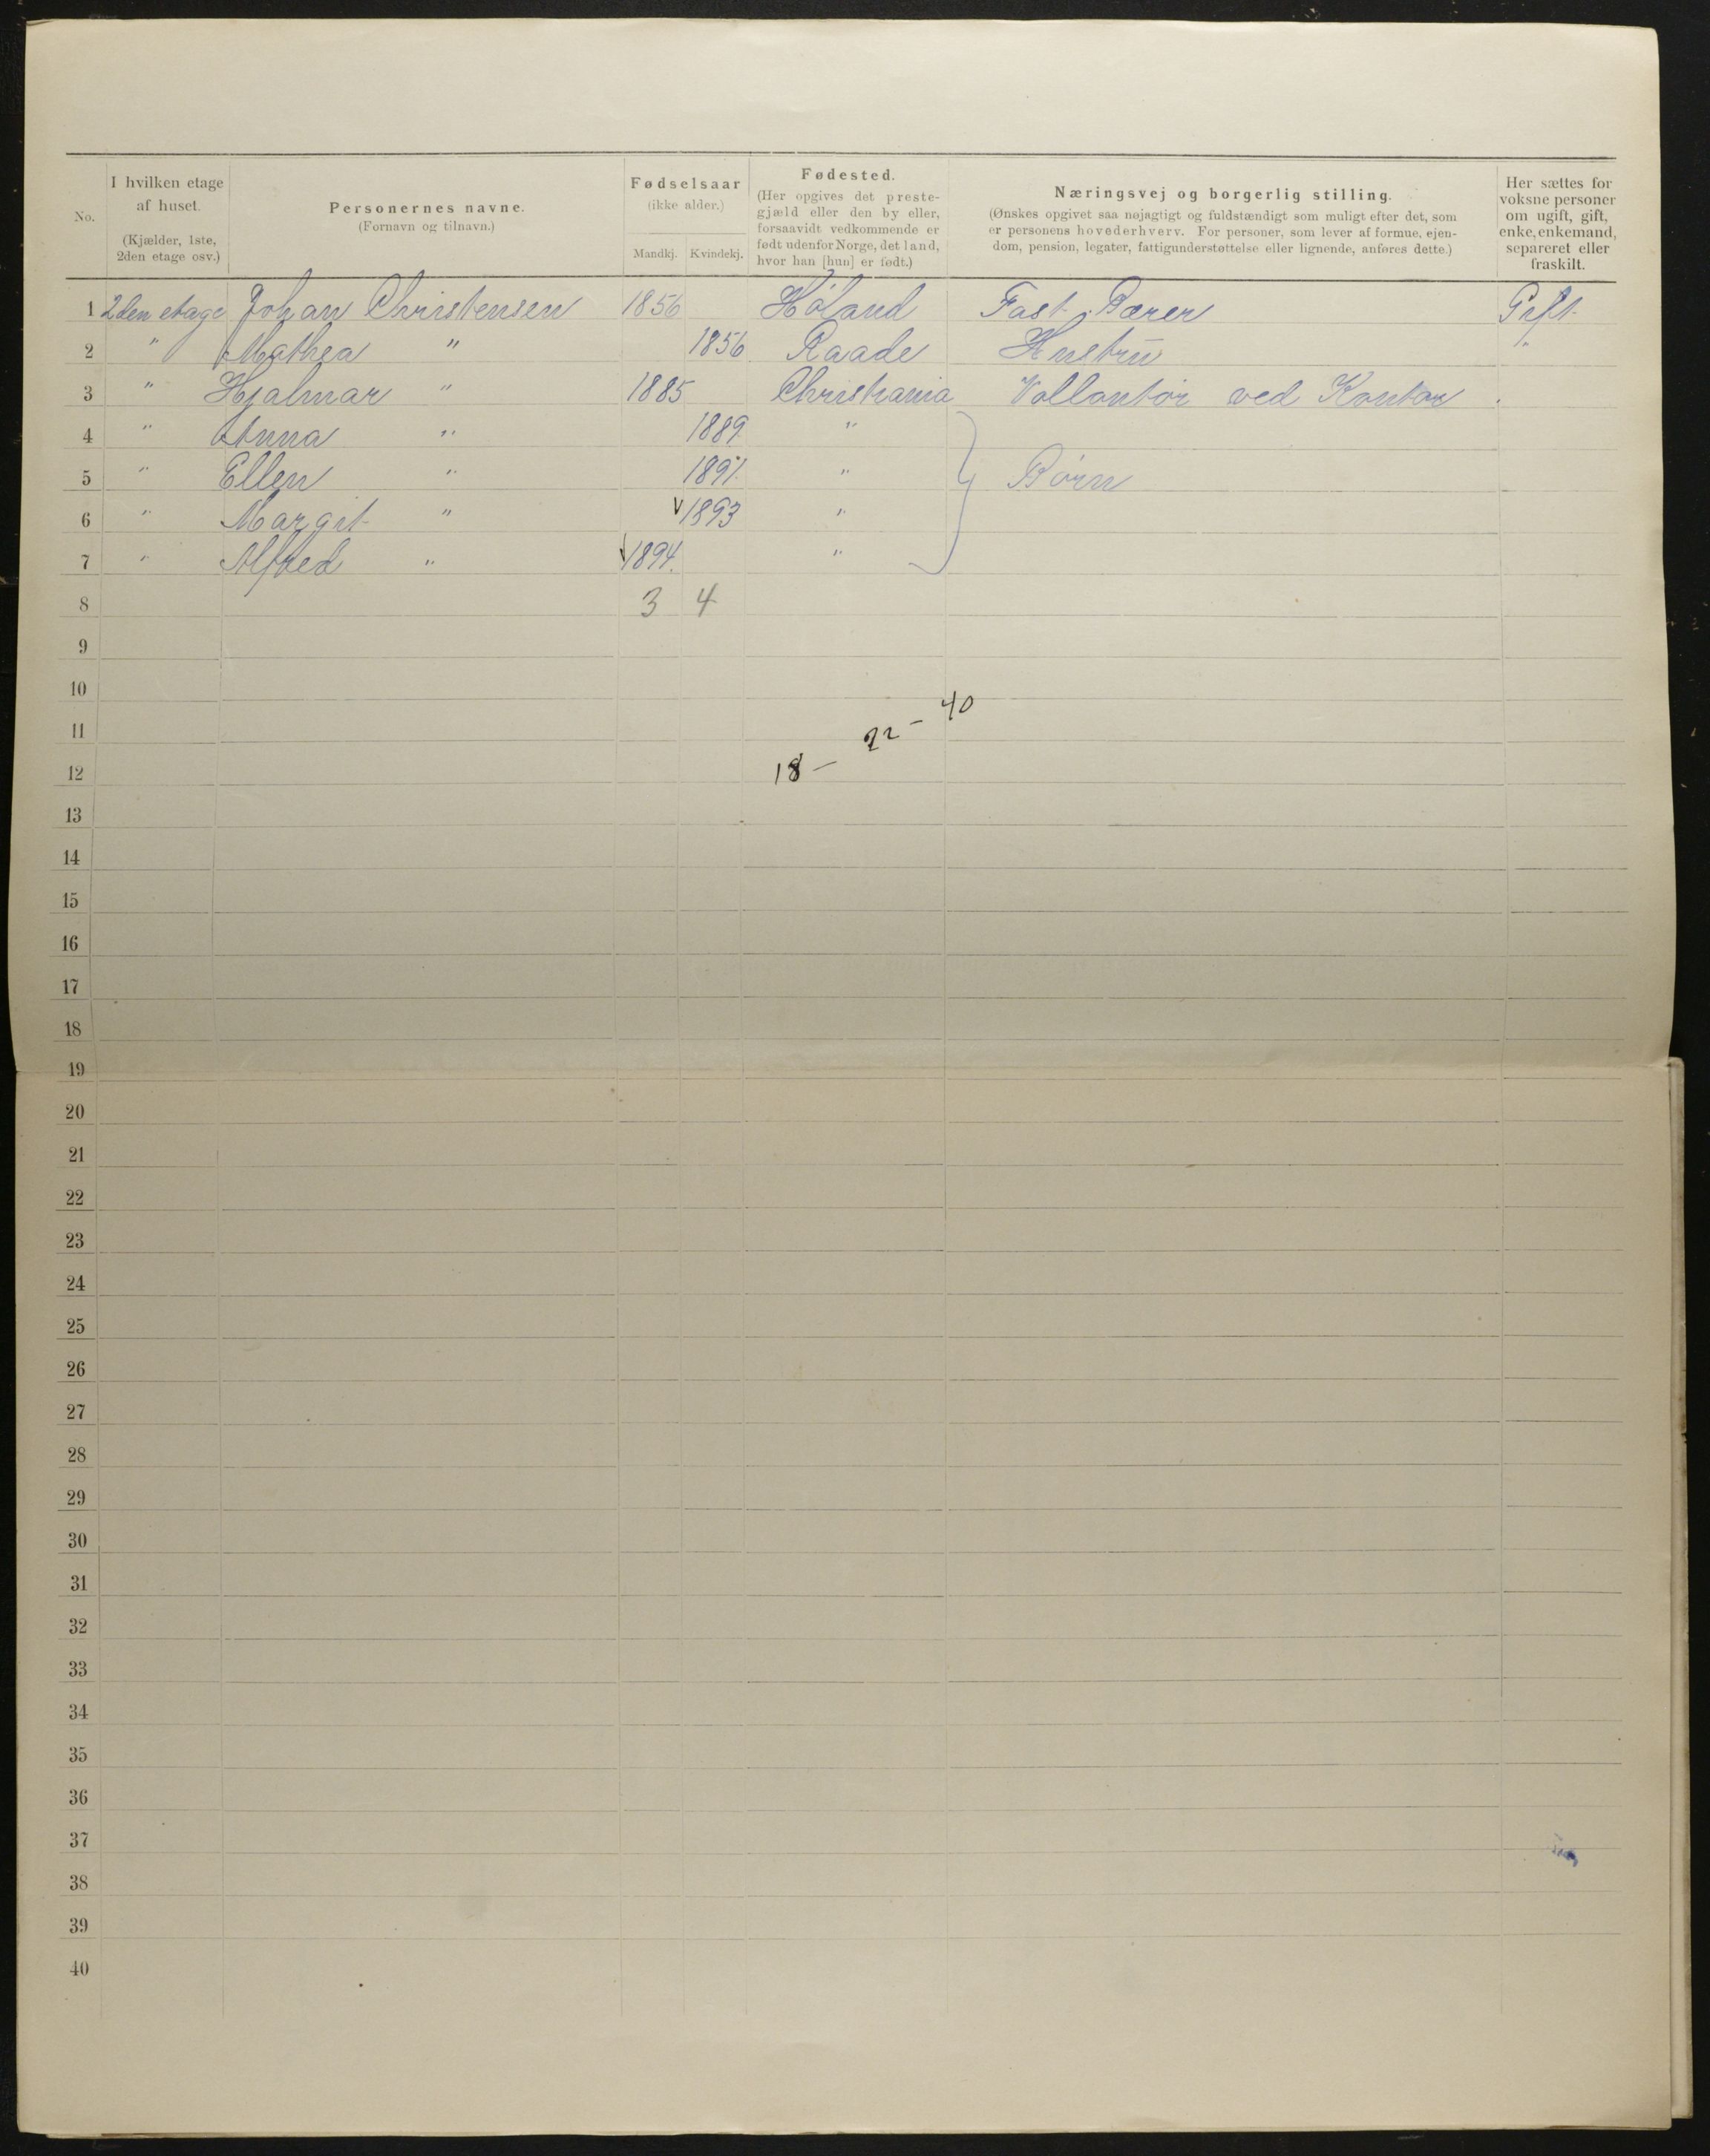 No.
I hvilken etage af huset. (Kjælder, 1ste, 2den etage osv.)
Personernes navne. (Fornavn og tilnavn.)
Fødselsaar (ikke alder.)
Mandkj. Kvindekj.
Fødested. (Her opgives det prestegjæld eller den by eller, forsaavidt vedkommende er født udenfor Norge, det land, hvor han [hun] er født.)
Næringsvej og borgerlig stilling. (Ønskes opgivet saa nøjagtigt og fuldstændigt som muligt efter det, som er personens hovederhverv. For personer, som lever af formue, ejendom, pension, legater, fattigunderstøttelse eller lignende, anføres dette.)
Her sættes for voksne personer om ugift, gift, enke, enkemand, separeret eller fraskilt.
1 2den etage Johan Christensen 1856 Høland Fast. Bærer Gift
2 " Mathea " 1856 Raade Hustrü "
3 " Hjalmar " 1885 Christiania Vollantør ved Kontor
4 " Anna " 1889 "
5 " Ellen " 1891 " Børn
6 " Margit " 1893 "
7 " Alfred " 1894. "
8 3 4
9
10
11
18 – 22 – 40
12
13
14
15
16
17
18
19
20
21
22
23
24
25
26
27
28
29
30
31
32
33
34
35
36
37
38
39
40